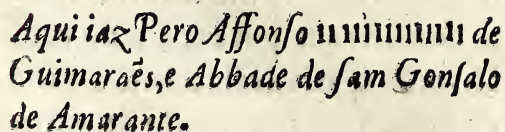 Aqui iaz Pero Affonſo ııııııııııı de
Guimaraẽs, e Abbade de ſam Gonſalo
de Amarante.